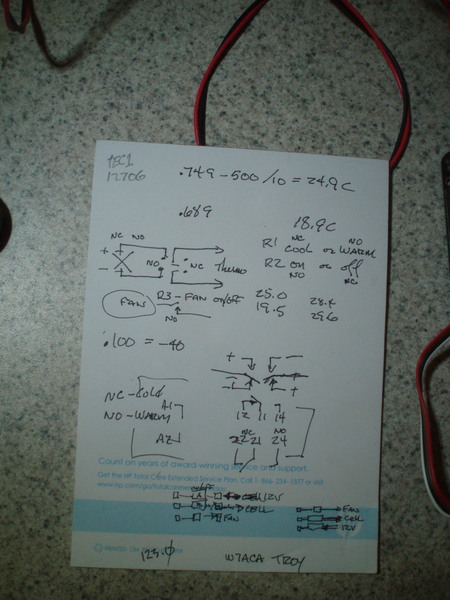 TEC1
12706
.749 - 500 /10 = 24.9C
.689
18.9C
NC NO
R1 COOL or WARM
NC NO
+
-
NO
NC Thermo
R2 on or off
NO NC
FANS
R3 - FAN on/off
NO
25.0 28.4
19.5 29.6
.100 = -40
+ -
- +
NC-COLD
NO-WARM
A1
A2
12 11 14
NC NO
22 21 24
Count on years of award winning service and support.
Get the HP Total Care Extended Service Plan. Call 1-866-234-1377 or visit
www.hp.com/go/totalcare
CELL 12V
CELL
FAN
FAN
CELL
12V
123.0
W7ACA TROY